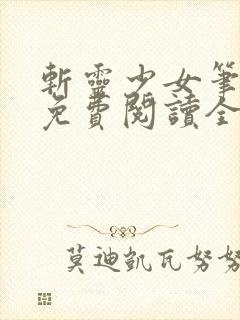 斬靈少女筆
免費閱讀全
莫迪凱瓦努努